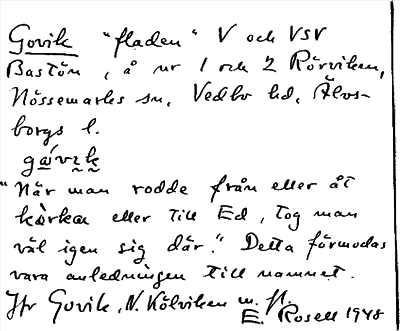 Govik "fladen" V och VSV
Bastön, å nr 1 och 2 Rörviken,
Nössemarks sn, Vedbo hd, Älvs-
borgs l.
"När man rodde från eller åt
eller till Ed, tog man
väl igen sig där." Detta förmodas
vara anledningen till namnet.
Govik, N. Kölviken m. fl.
E. Rosell 1948